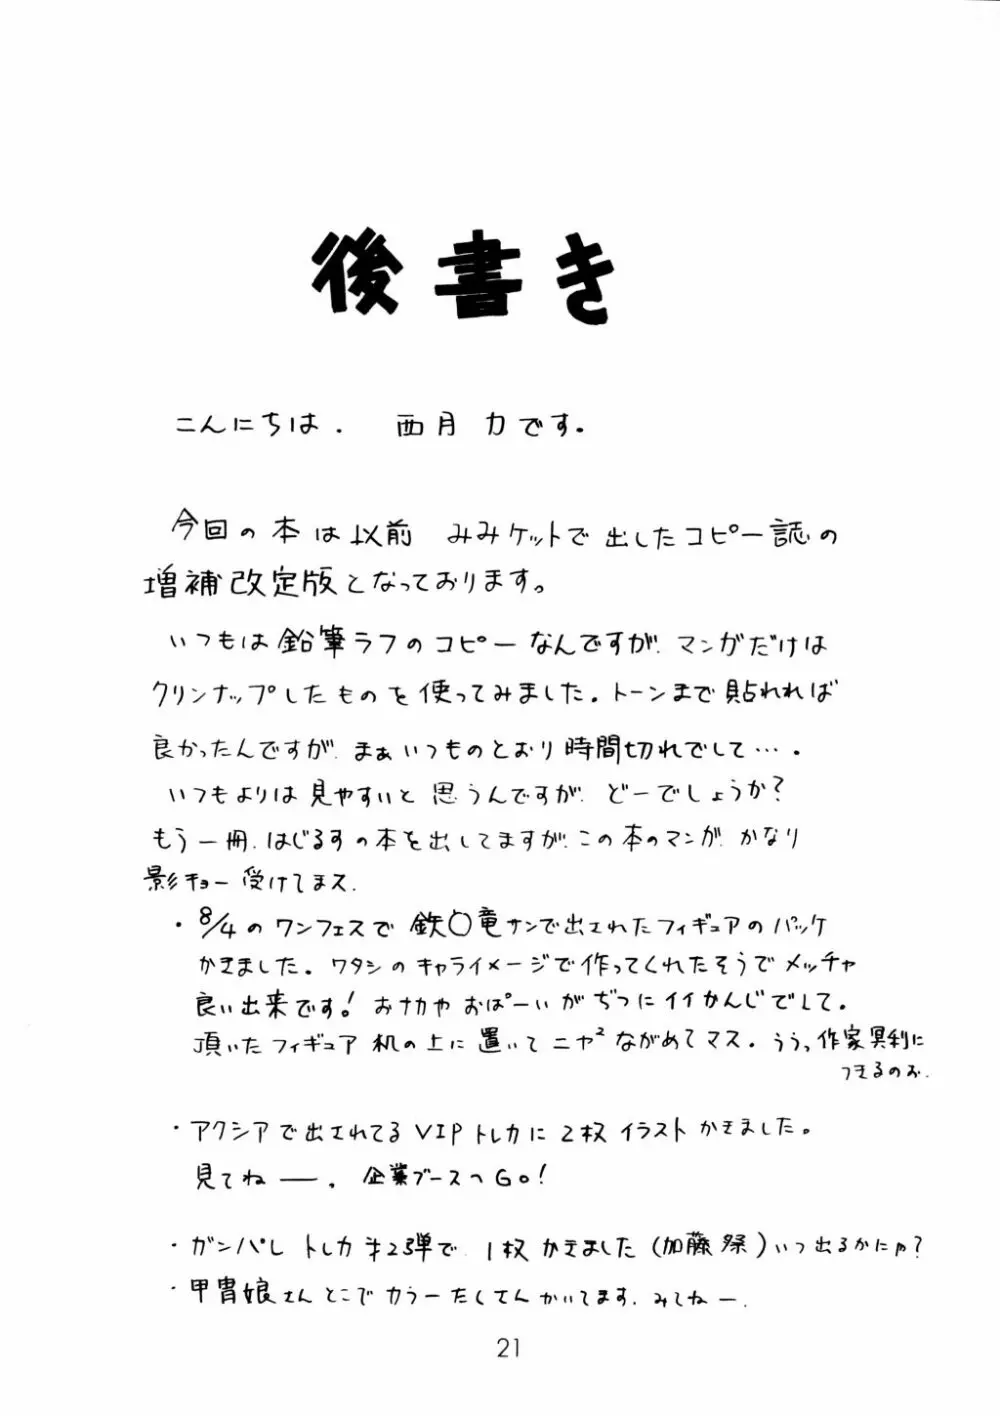 後書き
こんにちは. 西月 力です。
今回の本は以前 みみケットで出したコピー誌の
増補改定版となっております。
いつもは鉛筆ラフのコピーなんですが、マンガだけは
クリンナップしたものを使ってみました。トーンまで貼れれば
良かったんですが、まぁいつものとおり時間切れでして…。
いつもよりは見やすいと思うんですが、どーでしょうか?
もう一冊、はじるすの本を出してますが、この本のマンガ、かなり
影キョー受けてまス.
・8/4のワンフェスで鉄〇竜サンで出されたフィギュアのパッケ
かきました。ワタシのキャライメージで作ってくれたそうでメッチャ
良い出来です!おナカやおぱーいがぢつにイイかんじでして。
頂いたフィギュア机の上に置いてニヤ²ながめてマス。ううっ作家冥利に
つきるのお.
・アクシアで出されてるVIPトレカに2枚イラストかきました。
見てねー。企業ブースへGo!
・ガンパレ トレカ オ2弾で、1枚かきました(加藤祭)いつ出るかにゃ?
・甲冑娘さんとこでカラーたくさんかいてます、みてねー.
21